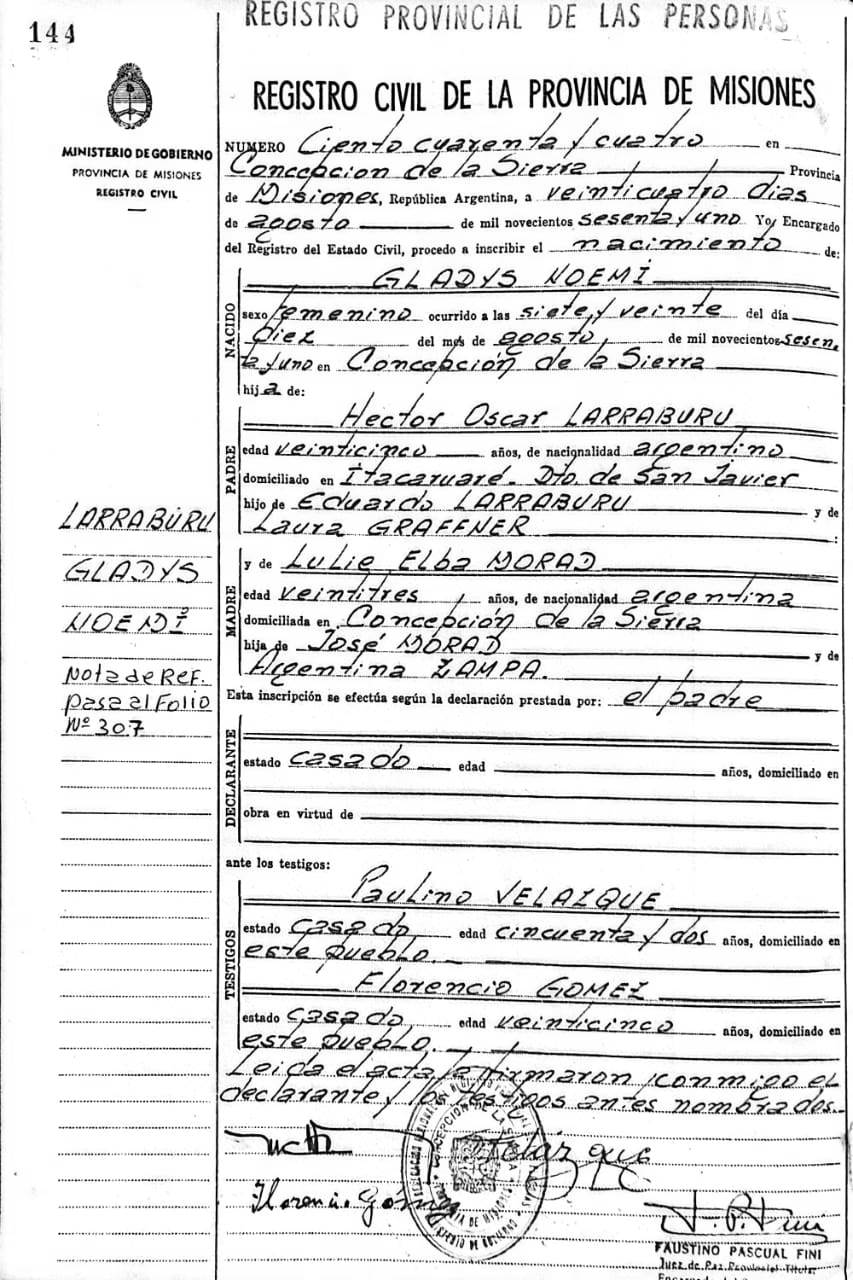 REGISTRO PROVINCIAL DE LAS PERSONAS
144
REGISTRO CIVIL DE LA PROVINCIA DE MISIONES
MINISTERIO DE GOBIERNO
PROVINCIA DE MISIONES
REGISTRO CIVIL
NUMERO Ciento cuarenta y cuatro en
Concepcion de la Sierra Provincia
de Misiones, República Argentina, a veinticuatro dias
de agosto de mil novecientos sesenta y uno Yo, Encargado
del Registro del Estado Civil, procedo a inscribir el nacimiento de:
NACIDO
GLADYS NOEMÍ
sexo femenino ocurrido a las siete y veinte del día
Diez del mes de agosto, de mil novecientos sesen,
ta y uno en Concepción de la Sierra
hija de:
PADRE
Hector Oscar LARRABURU
edad veinticinco años, de nacionalidad argentino
domiciliado en Itacaruaré. Dto. de San Javier
hijo de Eduardo LARRABURU y de
Laura GRAFFNER :
MADRE
y de Lulie Elba MORAD
edad veintitres, años, de nacionalidad argentina
domiciliada en Concepción de la Sierra
hija de José MORAD y de
Argentina ZAMPA.
Esta inscripción se efectúa según la declaración prestada por: el padre
LARRABURU
GLADYS
NOEMÍ
Nota de REF.
pasa al Folio
Nº 307
DECLARANTE
estado casado edad años, domiciliado en
obra en virtud de
ante los testigos:
TESTIGOS
Paulino VELAZQUE
estado casado edad cincuenta y dos años, domiciliado en
este pueblo.
Florencio GOMEZ
estado casado edad veinticinco años, domiciliado en
este pueblo.
Leida el acta la firmaron conmigo el
declarante y los testigos antes nombrados.
Velázque
Florencio Gómez
CONCEPCION DE LA SIERRA
FAUSTINO PASCUAL FINI
Juez de Paz Provincial Titular